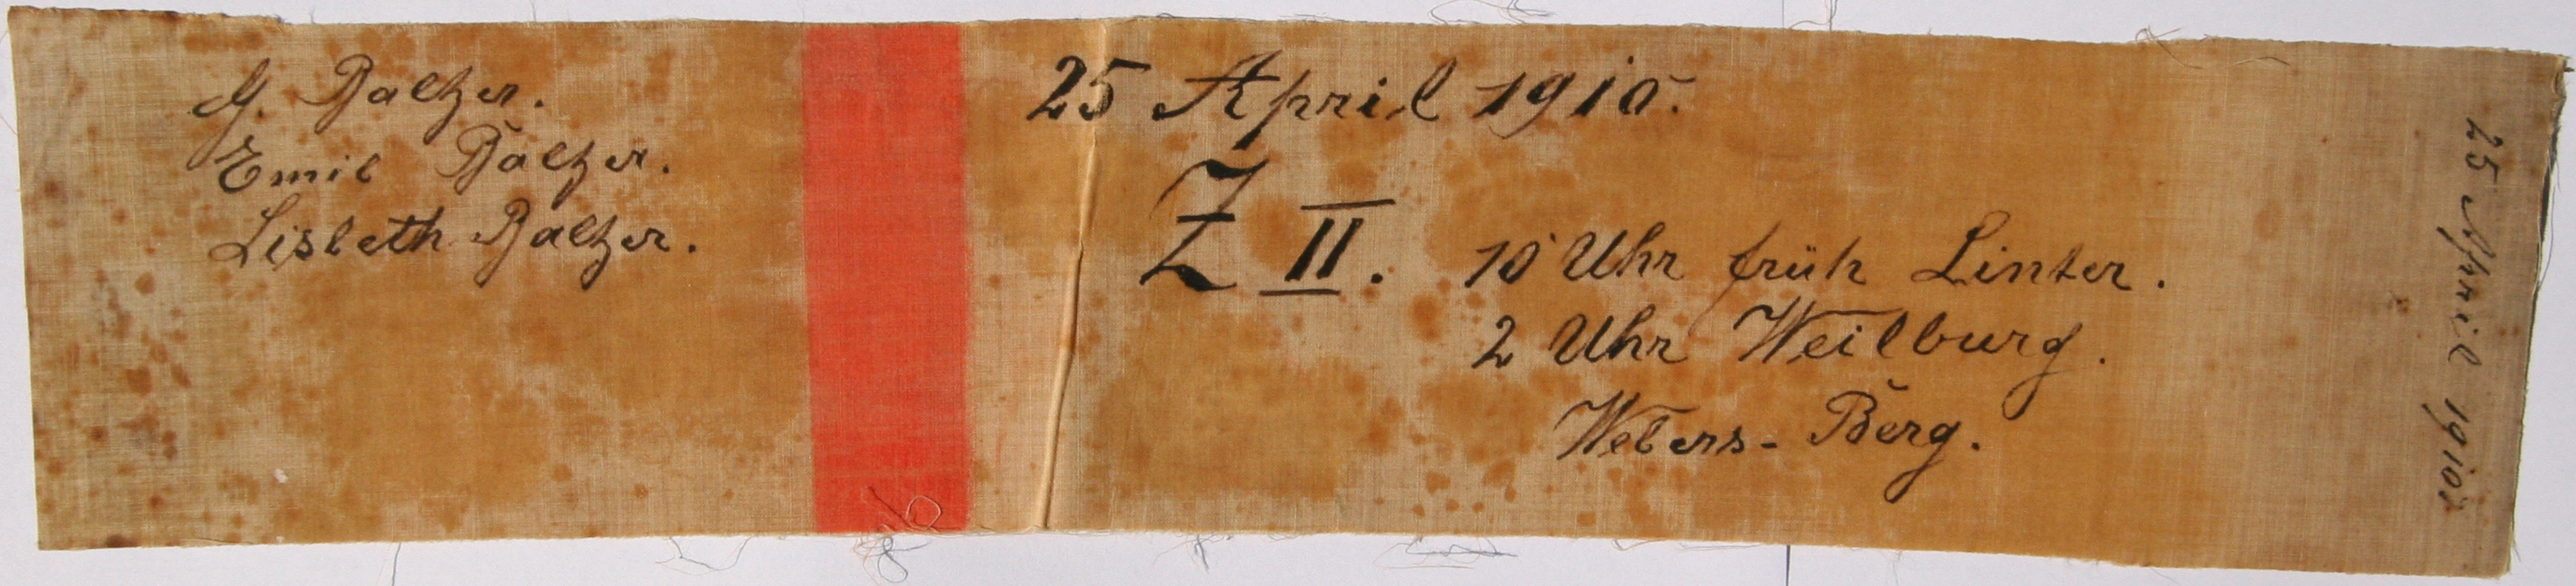 G. Baltzer.
Emil Baltzer.
Lisbeth Baltzer.
25 April 1910.
Z II. 10 Uhr früh Linter.
2 Uhr Weilburg.
Webers-Berg.
25 April 1910.